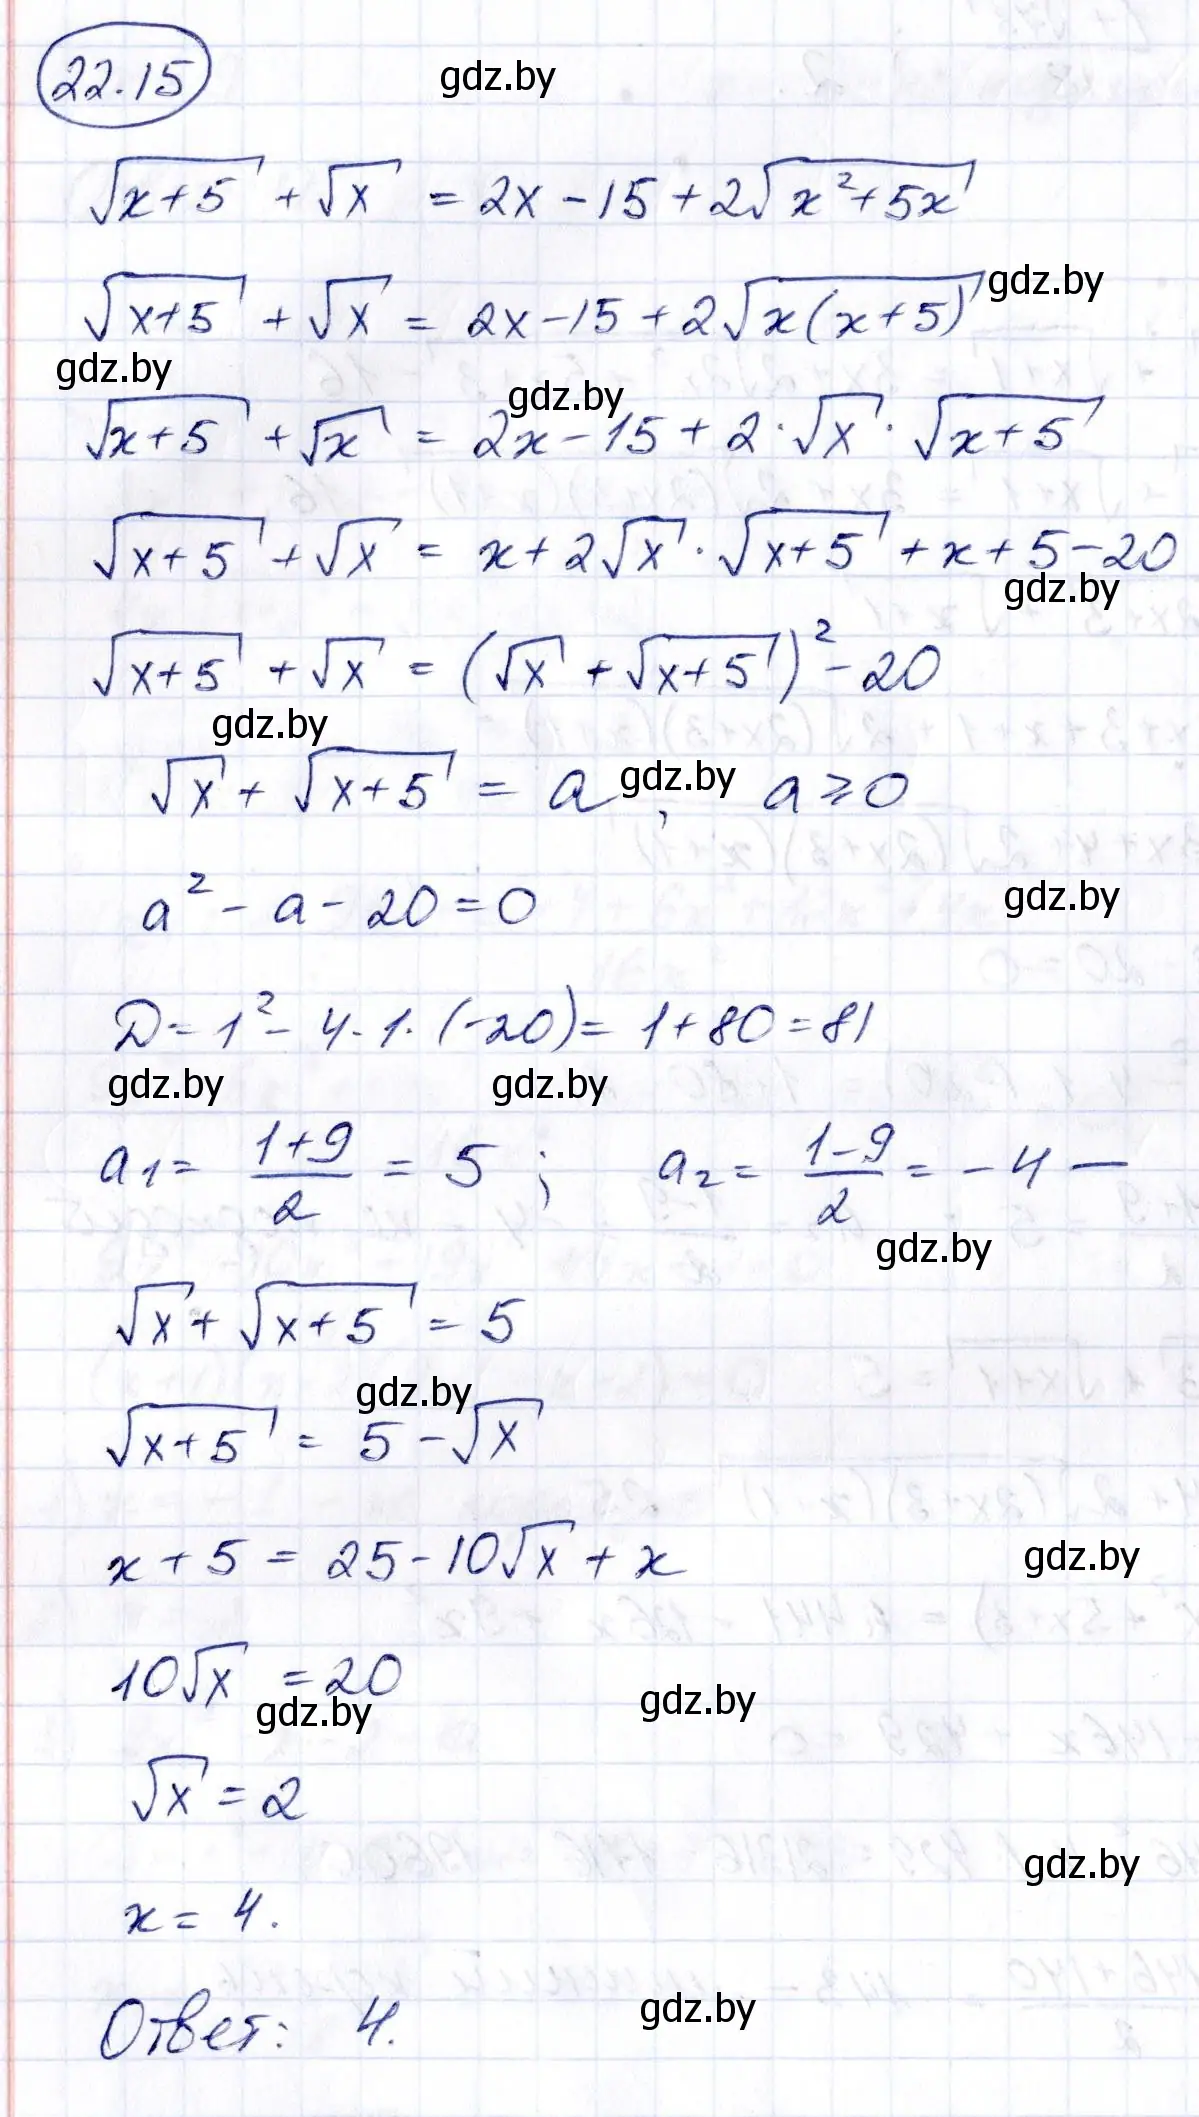 22.15 gdz.by
√(x+5) + √x = 2x - 15 + 2√(x²+5x)
√(x+5) + √x = 2x - 15 + 2√(x(x+5)) gdz.by
gdz.by gdz.by
√(x+5) + √x = 2x - 15 + 2·√x·√(x+5)
√(x+5) + √x = x + 2√x·√(x+5) + x + 5 - 20
gdz.by
√(x+5) + √x = (√x + √(x+5))² - 20
gdz.by
√x + √(x+5) = a, gdz.by a ≥ 0
a² - a - 20 = 0 gdz.by
D = 1² - 4·1·(-20) = 1 + 80 = 81
gdz.by gdz.by
a₁ = (1+9)/2 = 5 ; a₂ = (1-9)/2 = -4 —
gdz.by
√x + √(x+5) = 5
gdz.by
√(x+5) = 5 - √x
x + 5 = 25 - 10√x + x gdz.by
10√x = 20
gdz.by gdz.by
√x = 2
gdz.by
x = 4.
Ответ: 4. gdz.by